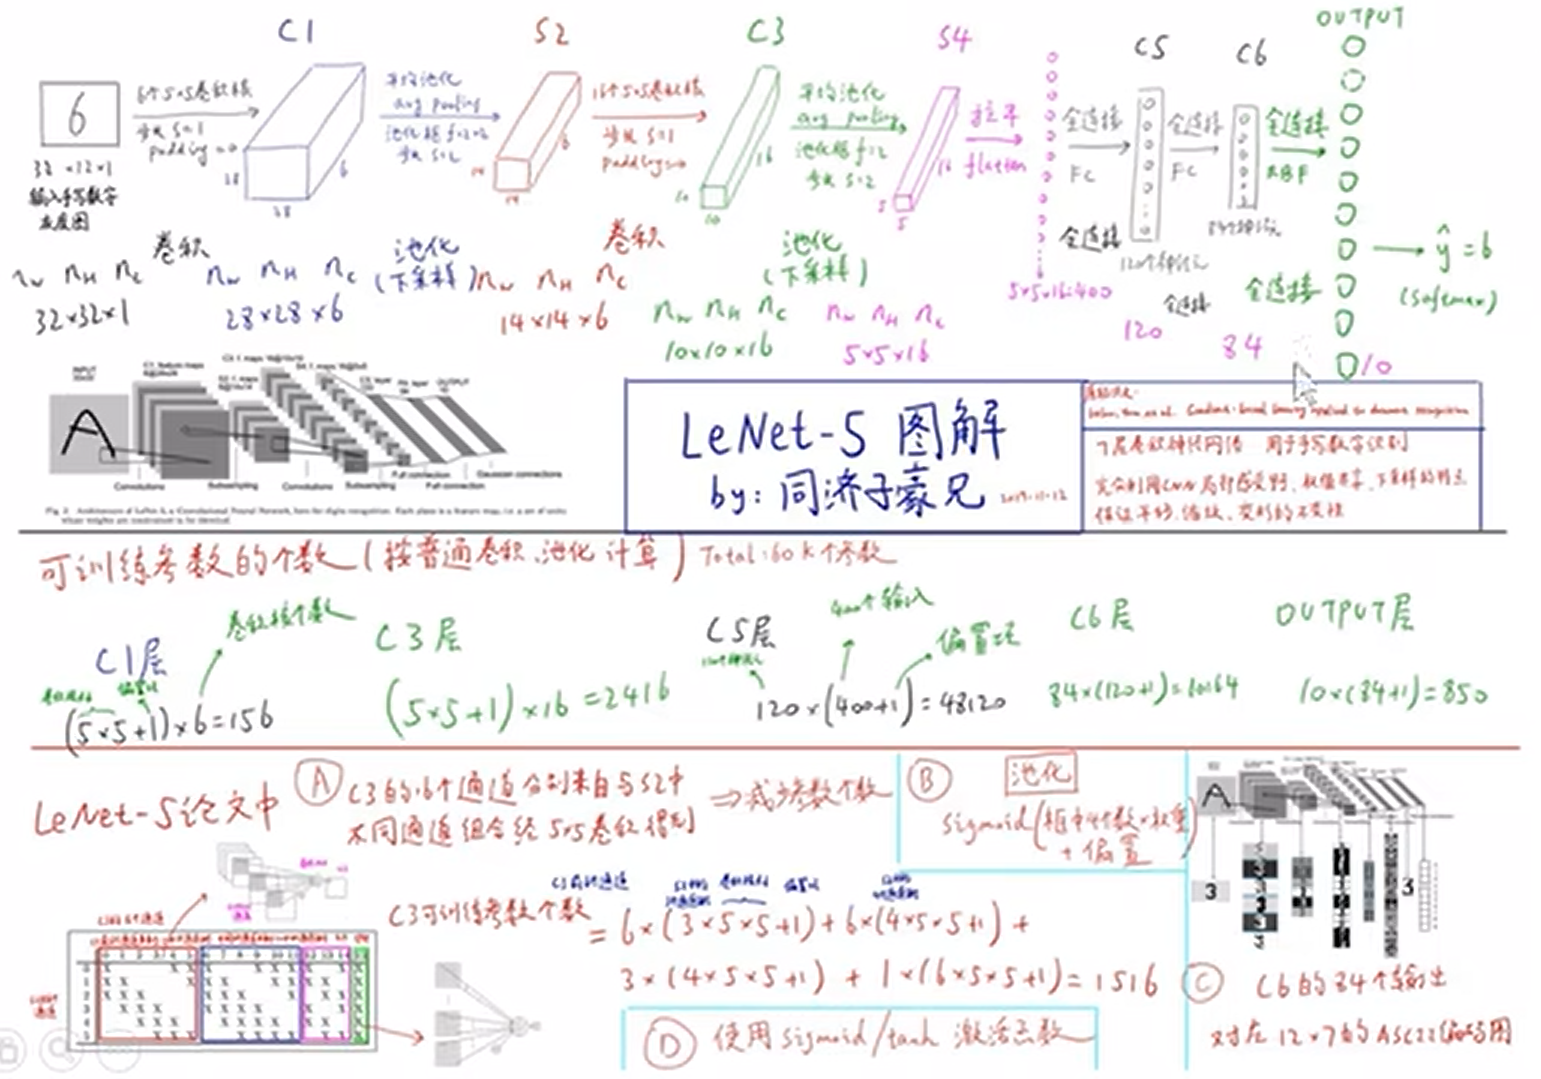 C1
S2
C3
S4
C5
C6
OUTPUT
6
6个5×5卷积核
步长 S=1
padding=0
平均池化
avg pooling
池化框 f=2
步长 S=2
16个5×5卷积核
步长 S=1
padding=0
平均池化
avg pooling
池化框 f=2
步长 S=2
拉平
flatten
全连接
FC
全连接
FC
全连接
RBF
32×32×1
输入手写数字
灰度图
28
28
6
14
14
6
10
10
16
5
5
16
5×5×16=400
全连接
120个神经元
84个神经元
全连接
全连接
120
84
10
ŷ=6
(softmax)
nw nH nc
32×32×1
卷积
nw nH nc
28×28×6
池化
(下采样)
nw nH nc
14×14×6
卷积
nw nH nc
10×10×16
池化
(下采样)
nw nH nc
5×5×16
A
Convolutions
Subsampling
Convolutions
Subsampling
Full connection
Full connection
Gaussian connections
LeNet-5 图解
by: 同济子豪兄
7层卷积神经网络 用于手写数字识别
充分利用CNN局部感受野、权值共享、下采样的特点
保证平移、缩放、变形的不变性
可训练参数的个数(按普通卷积、池化 计算) Total:60k个参数
C1层
卷积核个数
偏置项
(5×5+1)×6=156
C3层
(5×5+1)×16=2416
C5层
400个输入
偏置项
120×(400+1)=48120
C6层
84×(120+1)=10164
OUTPUT层
10×(84+1)=850
LeNet-5论文中
A C3的16个通道分别来自与S2中
不同通道组合经5×5卷积得到
⇒减少参数个数
C3可训练参数个数
= 6×(3×5×5+1)+6×(4×5×5+1)+
3×(4×5×5+1) + 1×(6×5×5+1)=1516
B 池化
sigmoid(框中4个数×权重
+偏置)
A
3
3
C C6的84个输出
对应12×7的ASCII编码图
D 使用sigmoid/tanh 激活函数